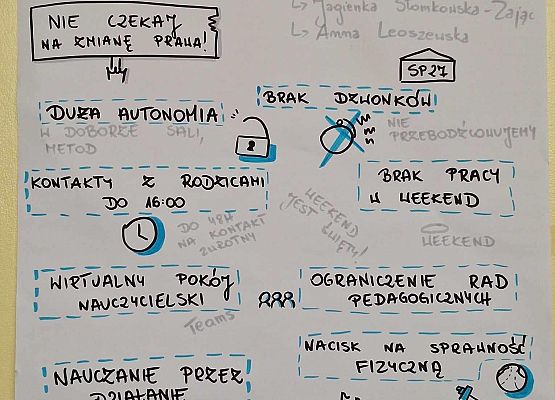 NIE CZEKAJ
NA ZMIANĘ PRAWA!
↳ Jagienka Słomkowska-Zając
↳ Anna Leoszewska
SP27
DUŻA AUTONOMIA
W DOBORZE SALI,
METOD
BRAK DZWONKÓW
NIE
PRZEBODŹCOWUJEMY
KONTAKTY Z RODZICAMI
DO 16:00
DO 48H
NA KONTAKT
ZWROTNY
BRAK PRACY
W WEEKEND
WEEKEND
JEST ŚWIĘTY!
WEEKEND
WIRTUALNY POKÓJ
NAUCZYCIELSKI
Teams
OGRANICZENIE RAD
PEDAGOGICZNYCH
NACISK NA SPRAWNOŚĆ
FIZYCZNĄ
NAUCZANIE PRZEZ
DZIAŁANIE